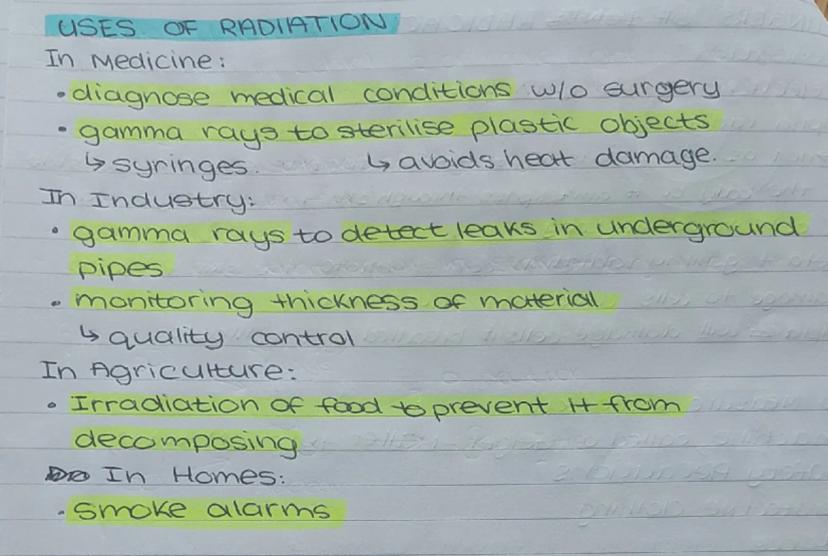 USES OF RADIATION
In Medicine:
• diagnose medical conditions w/o surgery
• gamma rays to sterilise plastic objects
↳ syringes. ↳ avoids heat damage.
In Industry:
• gamma rays to detect leaks in underground
pipes
• monitoring thickness of material
↳ quality control
In Agriculture:
• Irradiation of food to prevent it from
decomposing
In Homes:
• smoke alarms